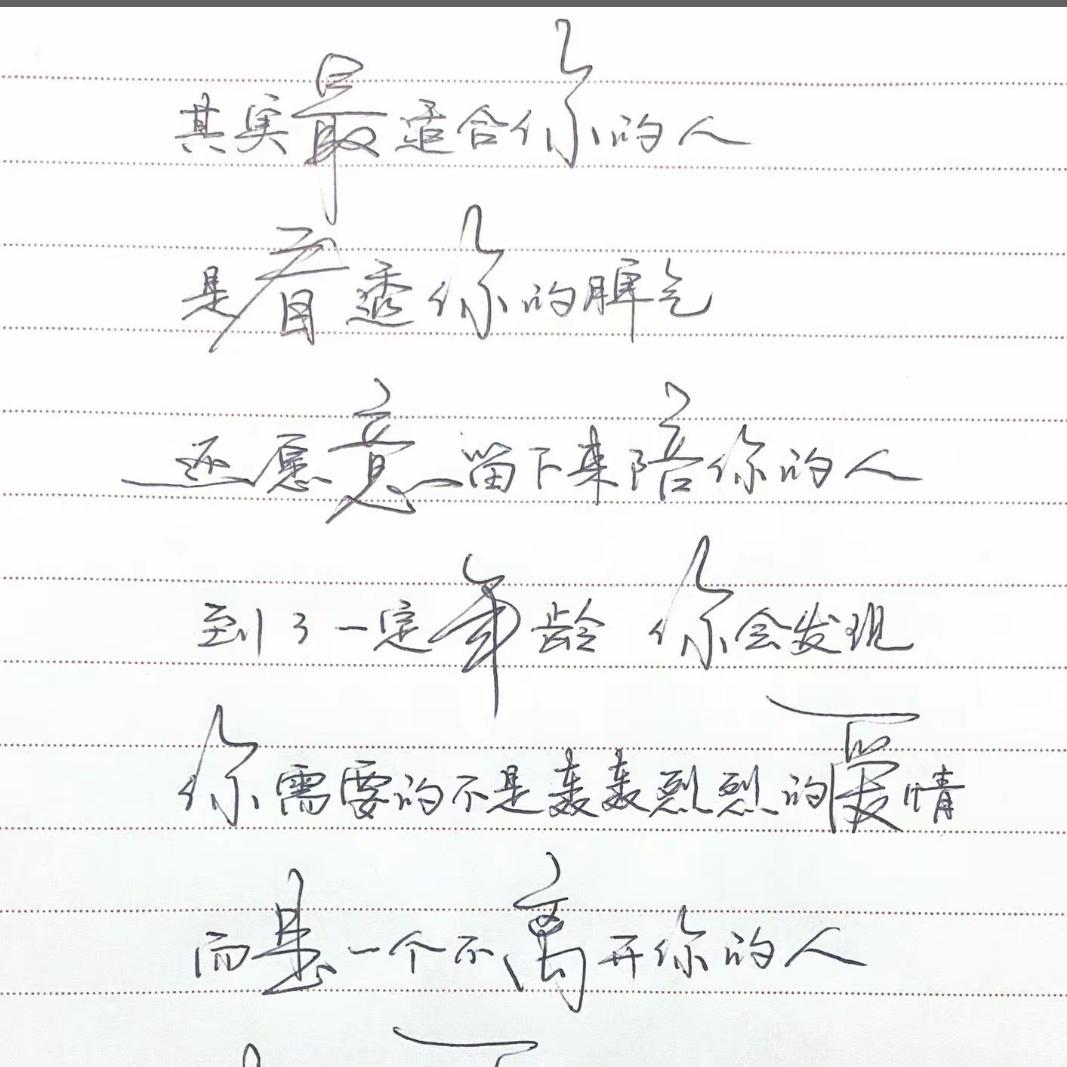 其实最适合你的人
是看透你的脾气
还愿意留下来陪你的人
到了一定年龄 你会发现
你需要的不是轰轰烈烈的爱情
而是一个不离开你的人